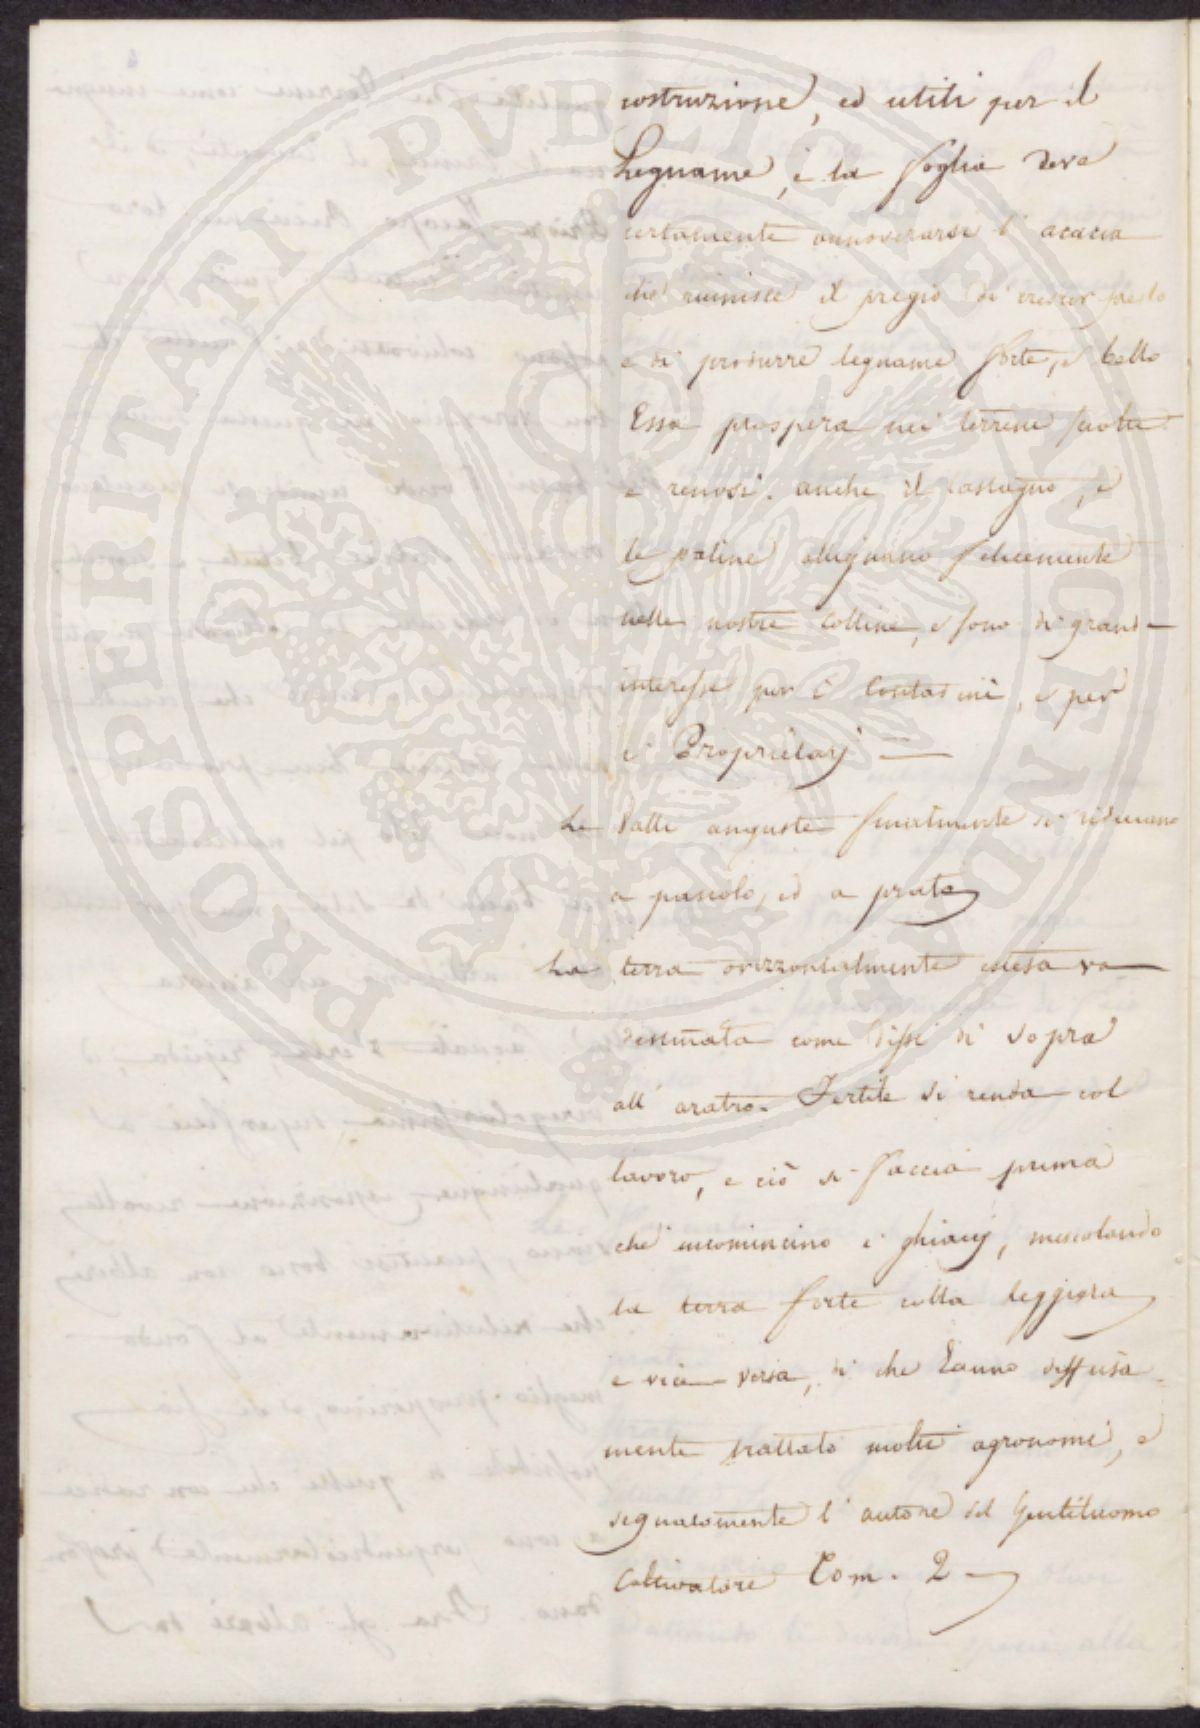 costruzione, ed utili per il
Legname, e la foglia deve
certamente annoverarsi l'acacia
che riunisce il pregio di crescer presto
e di produrre legname forte, e bello
Essa prospera nei terreni sciolti
e renosi. anche il Castagno, e
le paline allignano felicemente
nelle nostre Colline, e sono di grand
interesse per i Contadini, e per
i Proprietarj —
Le Valli anguste finalmente si riducano
a pascolo, ed a prato
La terra orizzontalmente estesa va
destinata come dissi di sopra
all'aratro. Fertile si renda col
lavoro, e ciò si faccia prima
che incomincino i ghiacij, mescolando
la terra forte colla leggiera
e vice versa, di che hanno diffusa
mente trattato molti agronomi, e
segnatamente l'autore del Gentiluomo
Coltivatore Tom. 2
PROSPERITATI PUBLICAE AUGENDAE